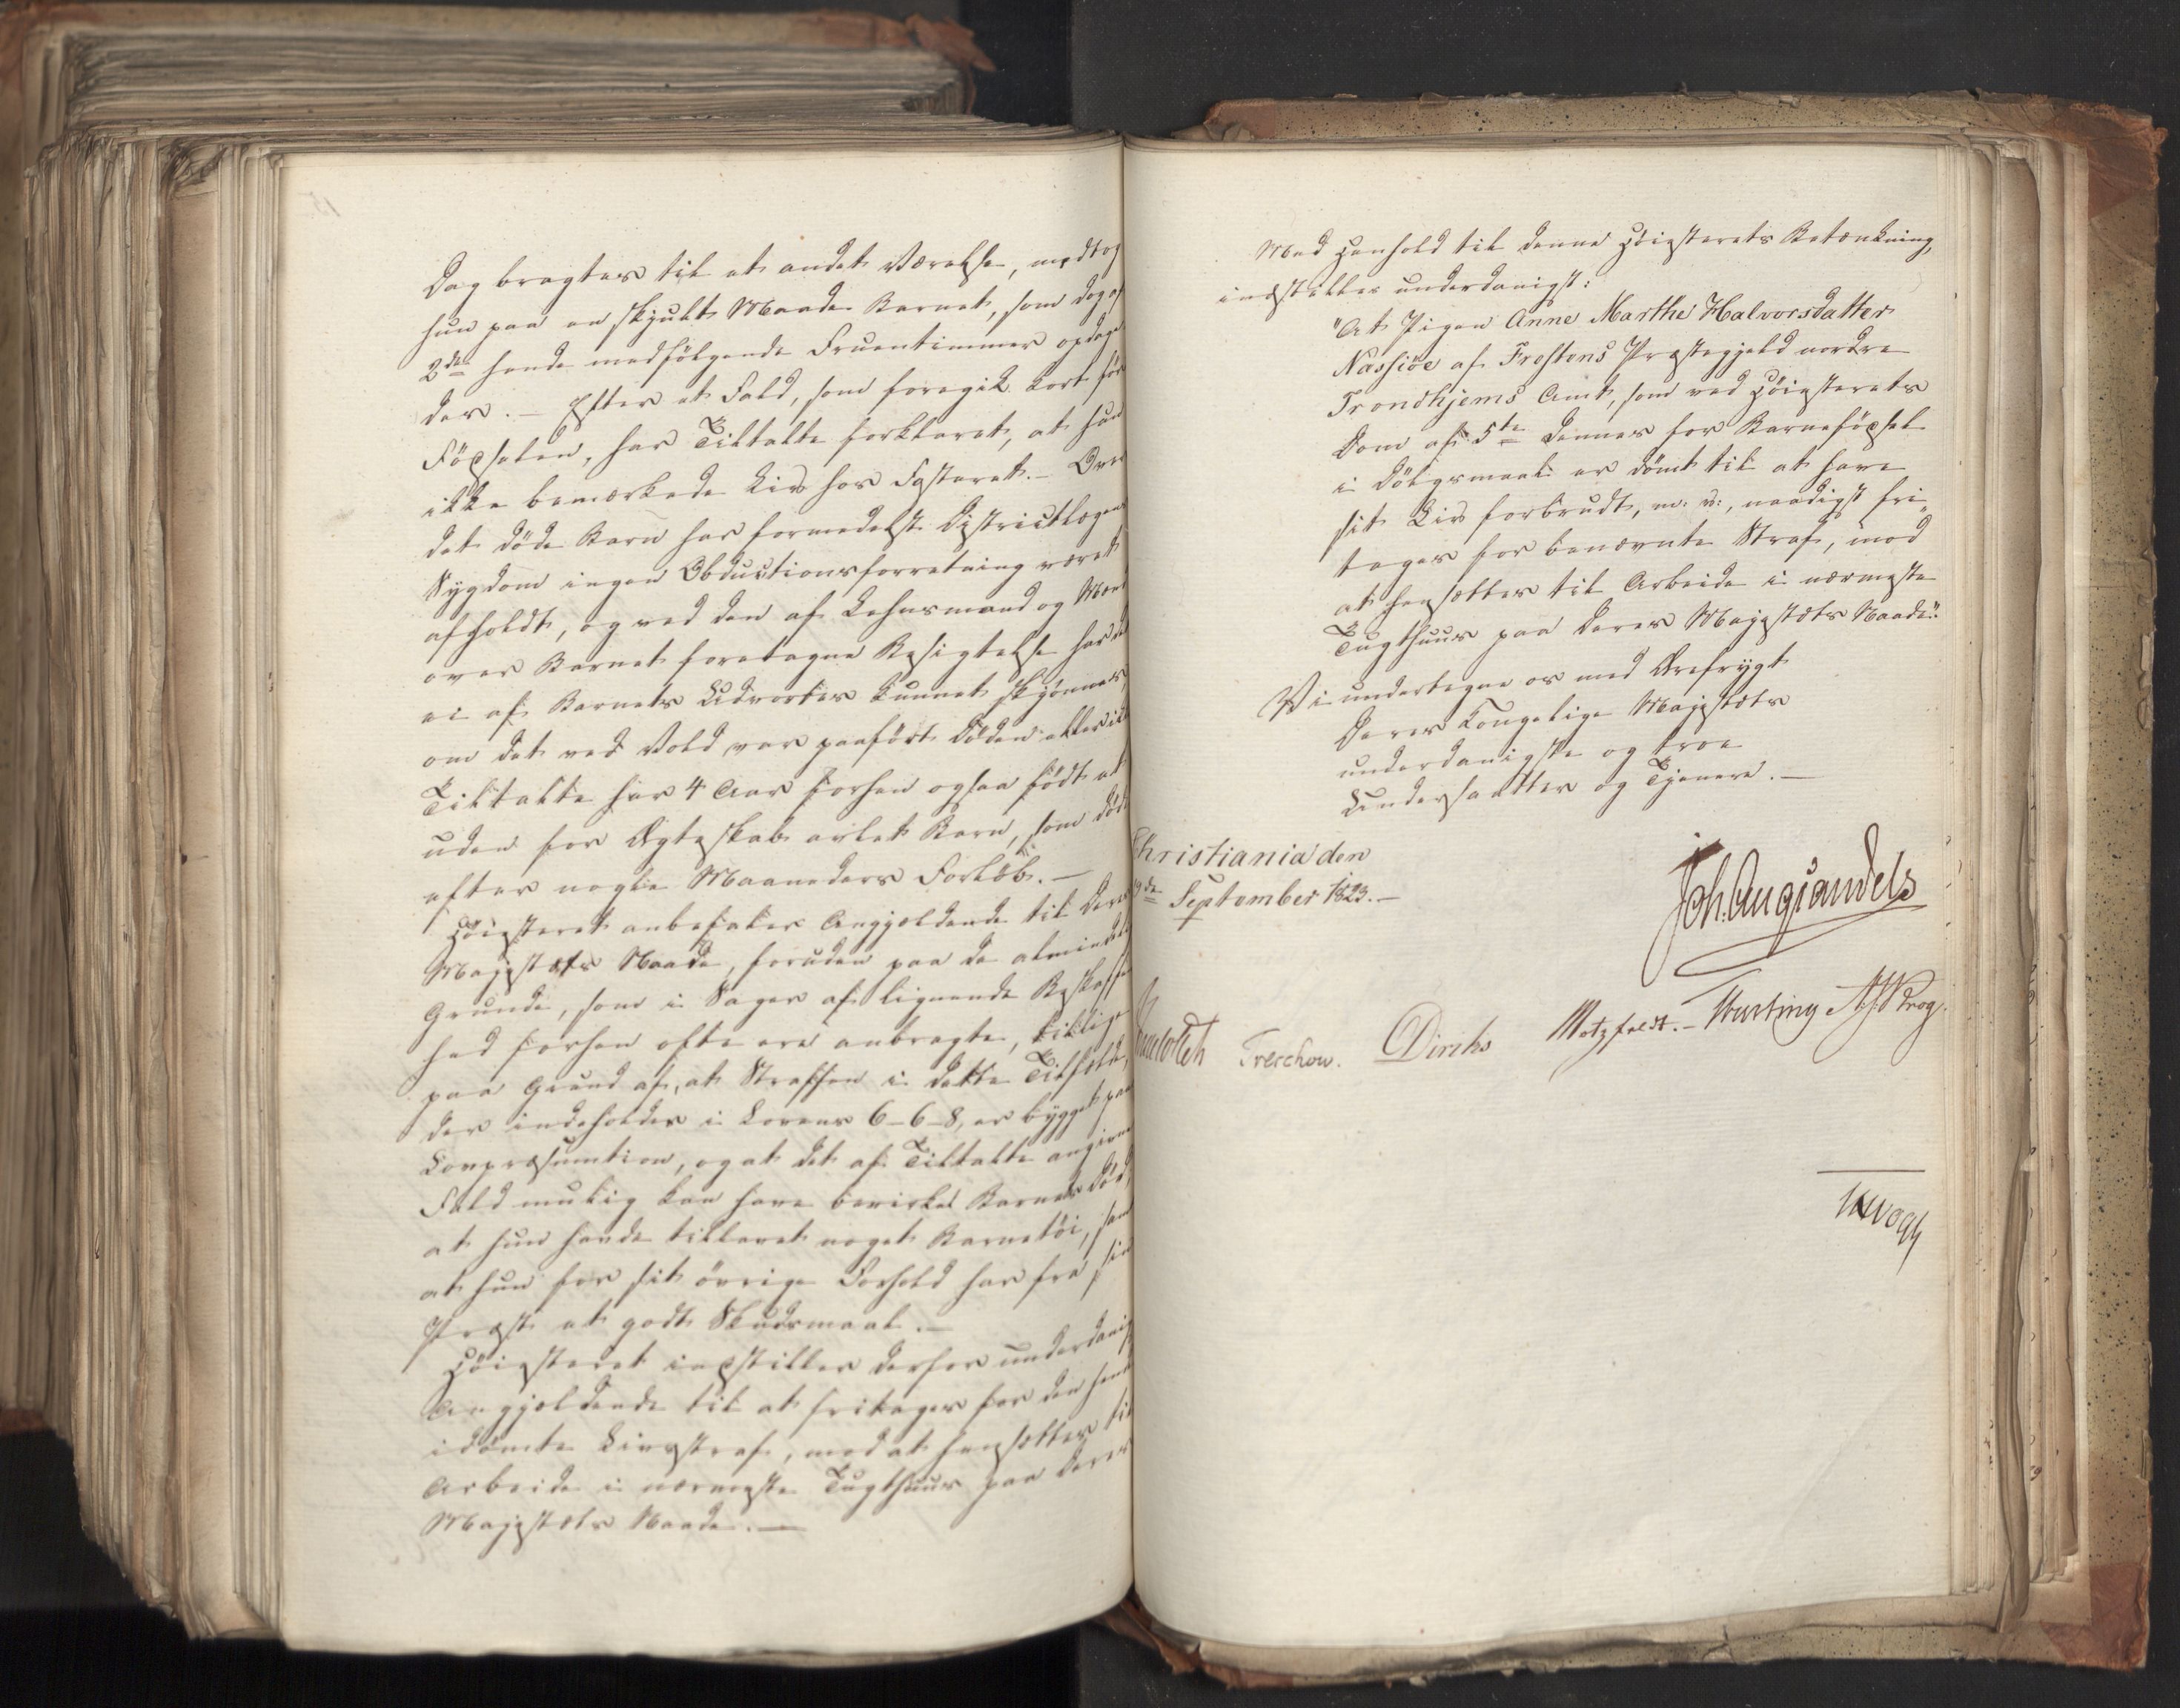 Dag bragtes til et andet Værelse, medtog
hun paa en skjult Maade Barnet, som dog af
2de hende medfölgende Fruentimmer opdage
des. – Efter et Fald, som foregik kort för
Födselen, har Tiltalte forklaret, at hun
ikke bemærkede Liv hos Fosteret. – Over
det döde Barn har formedelst Districtlægens
Sygdom ingen Obductionsforretning været
afholdt, og ved den af Lehnsmand og Mænd
over Barnet foretagne Besigtelse har
ei af Barnets Udvortes kunnet skjönnes,
om det ved Vold var paafört Döden eller ik
Tiltalte har 4 Aar forhen ogsaa födt et
uden for Ægteskab avlet Barn, som döde
efter nogle Maaneders Forlöb. –
Höiesteret anbefaler Angjeldende til Deres
Majestæts Naade, foruden paa de almindeli
Grunde, som i Sager af lignende Beskaffen
hed forhen ofte ere anbragte, tillige
paa Grund af, at Straffen i dette Tilfælde,
der indeholdes i Lovens 6–6–8, er bygget paa
Lovpræsumtion, og at det af Tiltalte angivne
Fald mulig kan have bevirket Barnets Död,
at hun havde tillavet noget Barnetöi, samt
at hun for sit övrige Forhold har fra sin
Præst et godt Skudsmaal. –
Höiesteret indstiller derfor underdanigst
Angjeldende til at fritages for den hende
idömte Livsstraf, mod at hensættes til
Arbeide i nærmeste Tugthuus paa Deres
Majestæts Naade. –
Med Henhold til denne Höiesterets Betænkning,
indstilles underdanigst:
"At Pigen Anne Marthe Halvorsdatter
Nassiöe af Frostens Præstegjeld nordre
Trondhjems Amt, som ved Höiesterets
Dom af 5te dennes for Barnefödsel
i Dölgsmaal er dömt til at have
sit Liv forbrudt, m: v:, naadigst fri„
tages for benævnte Straf, imod
at hensættes til Arbeide i nærmeste
Tugthuus paa Deres Majestæts Naade".
Vi undertegne os med Ærefrygt
Deres Kongelige Majestæts
underdanigste og troe
Undersaatter og Tjenere. –
Christiania den
de September 1823. –
Joh. Aug Sandels
Treschow. Diriks Motzfeldt. – Krog
Vogt